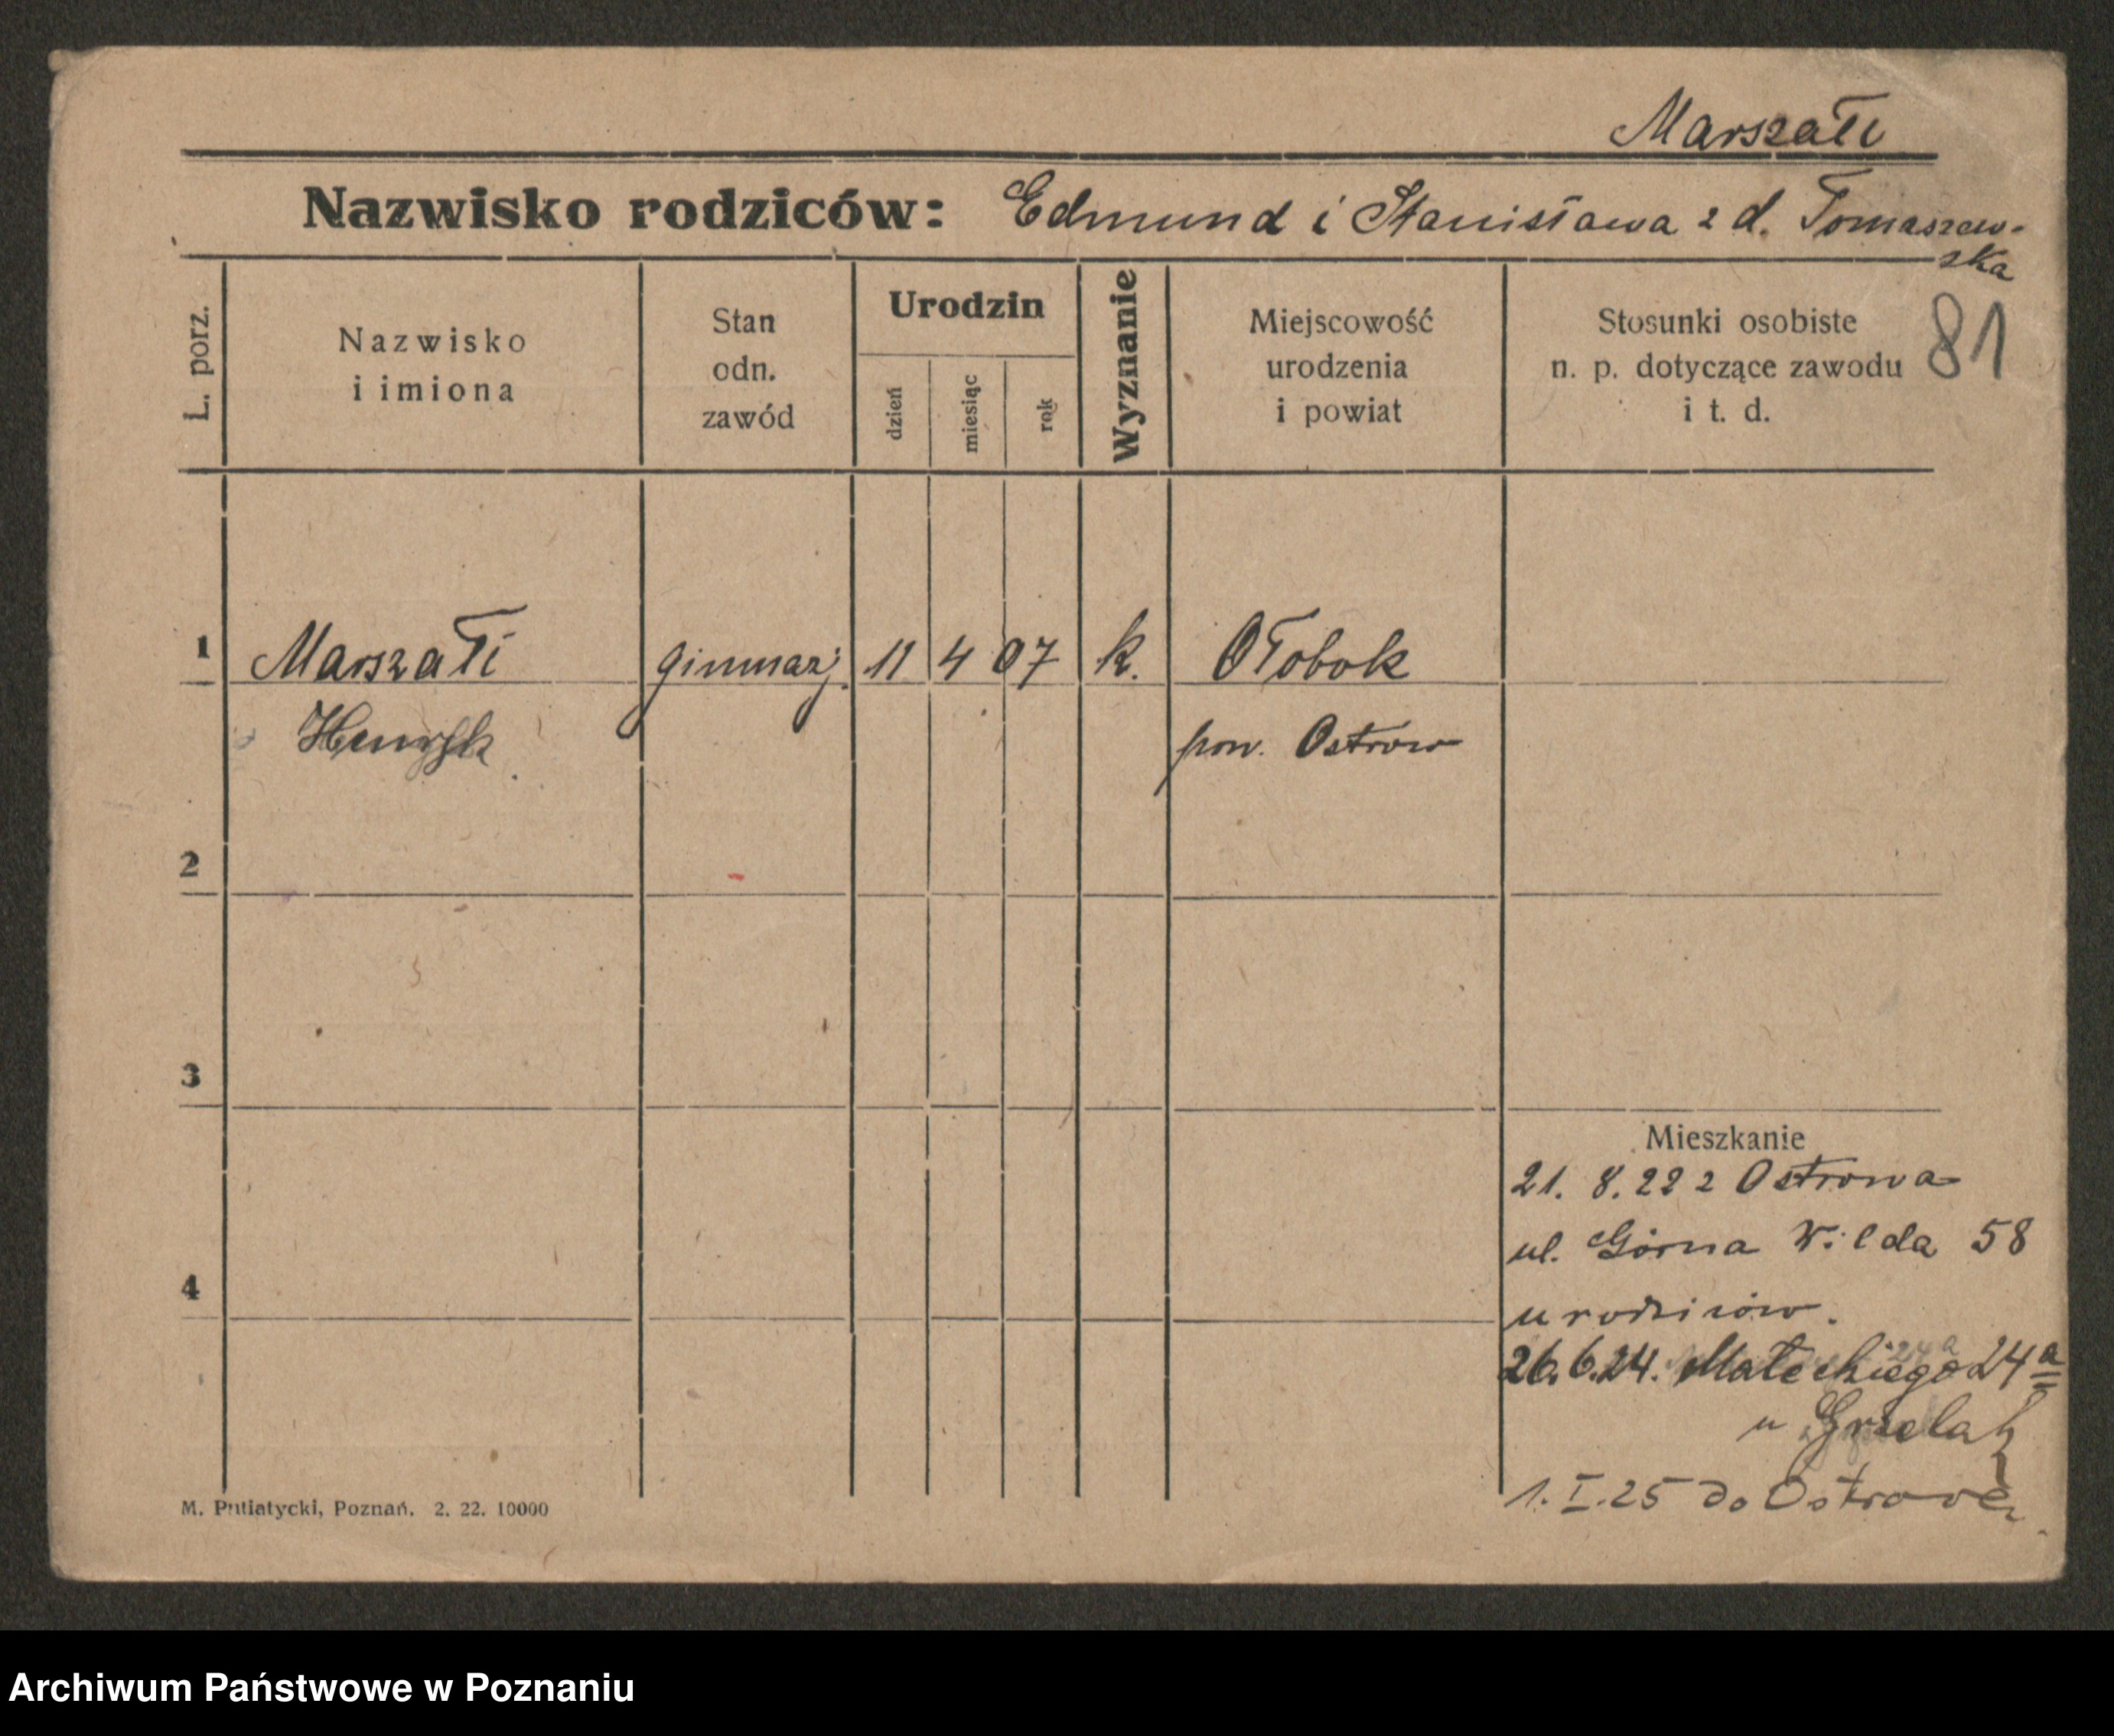 Marszałł
Nazwisko rodziców: Edmund i Stanisława z d. Tomaszew-
ska
81
L. porz.
Nazwisko
i imiona
Stan
odn.
zawód
Urodzin
dzień
miesiąc
rok
Wyznanie
Miejscowość
urodzenia
i powiat
Stosunki osobiste
n. p. dotyczące zawodu
i t. d.
1 Marszałł gimnazj. 11 4 07 k. Ołobok
Henryk pow. Ostrów
2
3
4
Mieszkanie
21. 8. 22 z Ostrowa
ul. Górna Wilda 58
u rodziców.
26.6.24. Małeckiego 24a
u Grzelak
1. I. 25 do Ostrowa
M. Putiatycki, Poznań. 2. 22. 10000
Archiwum Państwowe w Poznaniu